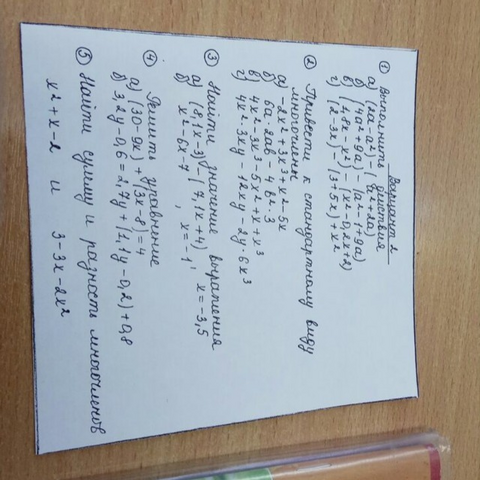 Вариант 2
① Выполнить действия
а) (2a-a²) - (a²+2a)
б) (4a²+9a) - (a²-1+9a)
в) (1,8x-x²) - (x²-0,2x+2)
г) (2-3x) - (3+5x)+x²
② Привести к стандартному виду
многочлены
а) -2x²+3x³+x²-5x
б) 6a·2ab-4b²·3
в) 4x²-3x³-5x²+x+x³
г) 4x²·3xy-12xy-2y·6x³
③ Найти значение выражения
а) (8,1x-3) - (7,1x+4), x=-3,5
б) x²-6x+7, x=-1
④ Решить уравнение
а) (30-9x)+(3x-8)=4
б) 3,2y-0,6=2,7y+(1,1y-0,2)+0,8
⑤ Найти сумму и разность многочленов
x²+x-2 и 3-3x-2x²